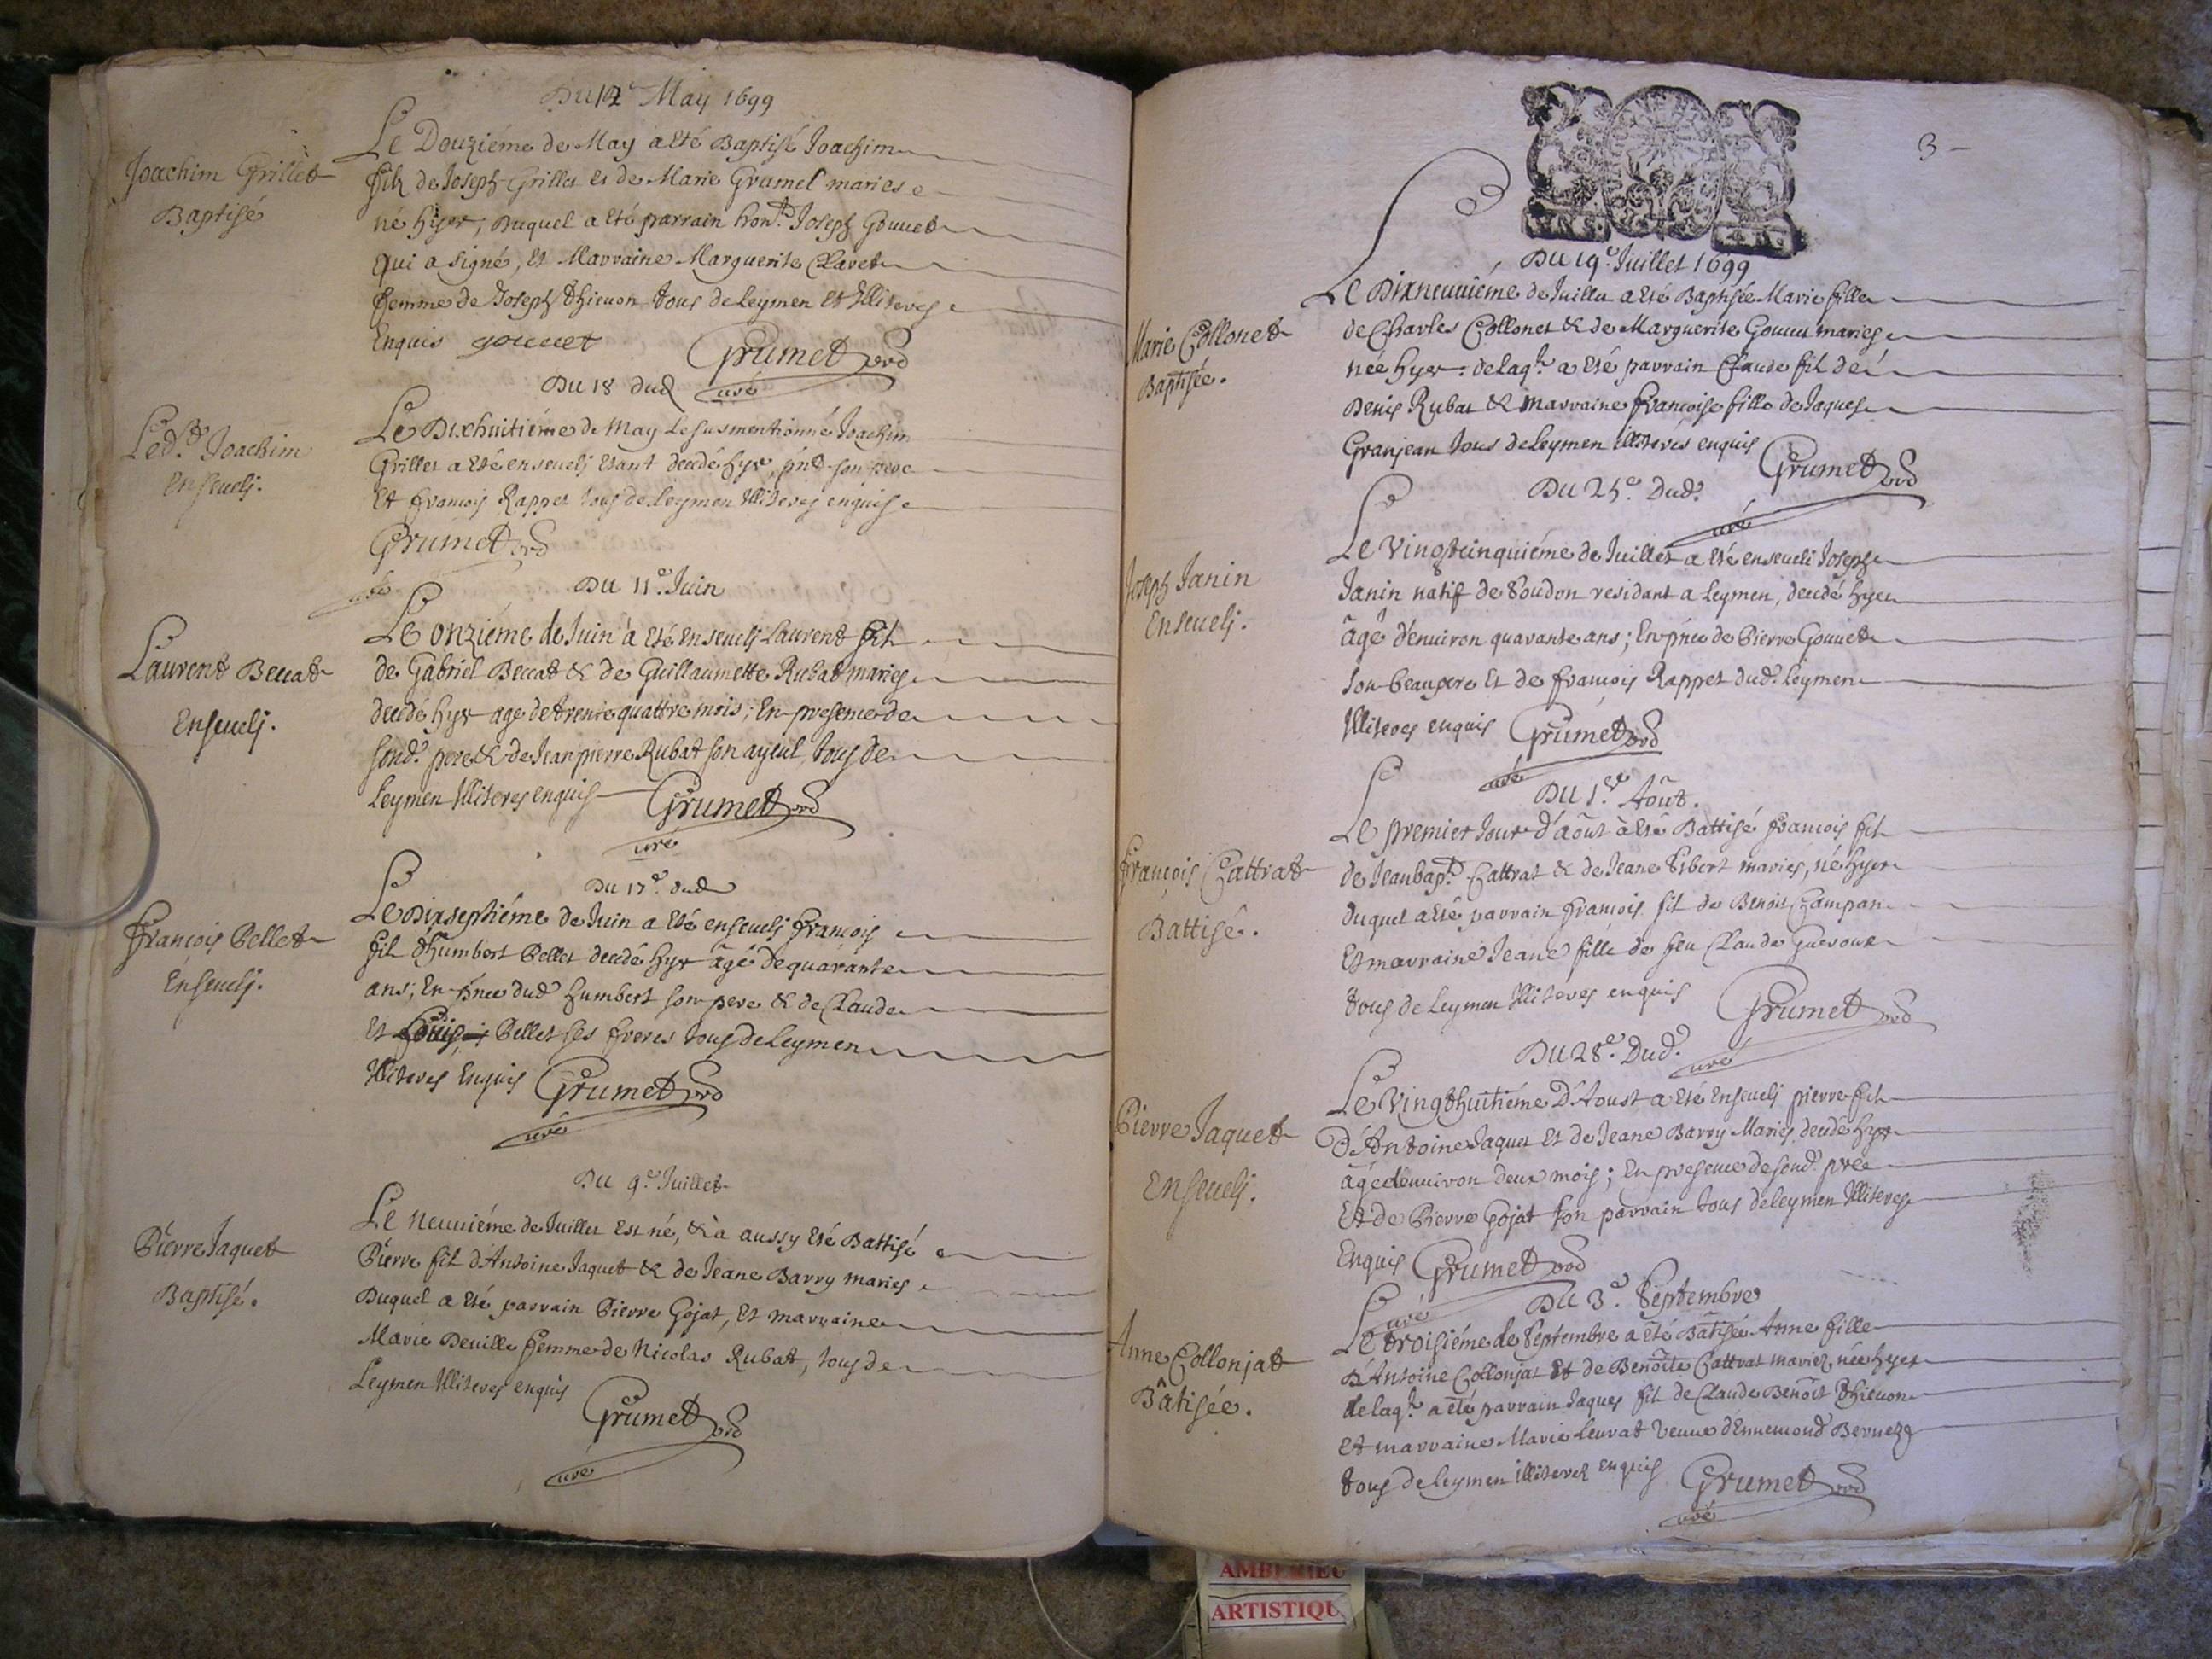 Du 12e May 1699
Joachim Grillet
Baptisé
Le Douziéme de May a eté Baptisé Joachim
fils de Joseph Grillet et de Marie Grumel mariés
né hyer, Duquel a eté parrain hont. Joseph Gouuet
qui a signé, et Marraine Marguerite Clavet
femme de Joseph Thieuon tous de Leymen et Illiteres
Enquis gouuet Grumet
curé
Du 18 dud
Led. Joachim
Enseueli.
Le Dixhuitiéme de May le susmentionné Joachim
Grillet a eté enseueli etant decedé hyer, pnt son pere
Et francois Rappet tous de Leymen Illiteres enquis
Grumet
curé
Du 11e Juin
Laurent Beccat
Enseueli.
Le onziéme de Juin a eté Enseueli Laurent fils
de Gabriel Beccat & de Guillaumette Rubat mariés
decedé hyer agé de trente quattre mois; En presence de
sond. pere & de Jean pierre Rubat son ayeul, tous de
Leymen Illiteres enquis Grumet
curé
Du 17e dud
François Pellet
Enseueli.
Le Dixseptiéme de Juin a eté enseueli francois
fils d'humbert Pellet decedé hyer âgé de quarante
ans; En pnce dud humbert son pere & de Claude
et Pellet ses freres tous de Leymen
Illiteres Enquis Grumet
curé
Du 9e Juillet
Pierre Jaquet
Baptisé.
Le Neuuiéme de Juillet est né, & a aussy eté Battisé
Pierre fils d'Antoine Jaquet & de Jeane Barry mariés
Duquel a eté parrain Pierre Gojat, et marraine
Marie Deuille femme de Nicolas Rubat, tous de
Leymen Illiteres enquis
Grumet
curé
3
Du 19e Juillet 1699
Marie Collonet
Baptisée.
Le Dixneuuiéme de Juillet a eté Baptisée Marie fille
de Charles Collonet & de Marguerite Gouuet mariés
née hyer: de laqle a eté parrain Claude fils de
Denis Rubat & marraine françoise fille de Jaques
Granjean tous de Leymen illiteres enquis Grumet
curé
Du 25e Dud.
Joseph Janin
Enseueli.
Le Vingtcinquiéme de Juillet a eté enseueli Joseph
Janin natif de Soudon residant a Leymen, decedé hyer
âgé d'enuiron quarante ans; En pnce de Pierre Gouuet
son beaupere et de francois Rappet dud. Leymen
Illiteres enquis Grumet
curé
Du 1er Aôut.
François Cattrat
Battisé.
Le premier Jour d'aôut a eté Battisé francois fils
de Jeanbapt. Cattrat & de Jeane Sibert mariés, né hyer
duquel a eté parrain francois fils de Benoit Campan
Et marraine Jeane fille de feu Claude
tous de Leymen Illiteres enquis Grumet
curé
Du 28e Dud.
Pierre Jaquet
Enseueli.
Le Vingthuitiéme D'Aoust a eté Enseueli pierre fils
D'Antoine Jaquet Et de Jeane Barry Mariés, decedé hyer
agé denuiron deux mois; En presence de sond. pere
Et de Pierre Gojat son parrain tous de Leymen Illiteres
Enquis Grumet
curé
Du 3e Septembre
Anne Collonjat
Bâtisée.
Le troisiéme de Septembre a eté Batisée Anne fille
D'Antoine Collonjat et de Benoîte Cattrat mariez, née hyer
de laqle a eté parrain Jaques fils de Claude Benoît Thieuon
Et marraine Marie Leurat Veuue d'Ennemond Bernezo
tous de Leymen illiterez enquis Grumet
curé
AMBERIEU
ARTISTIQU